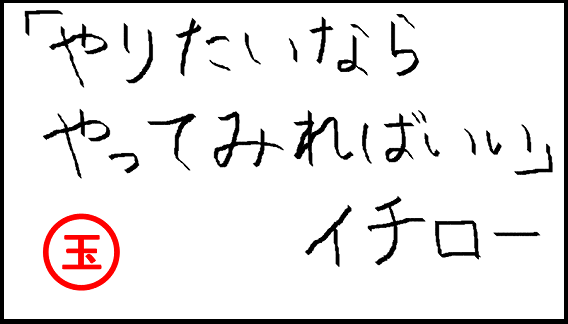 「やりたいなら
やってみればいい」
イチロー
玉